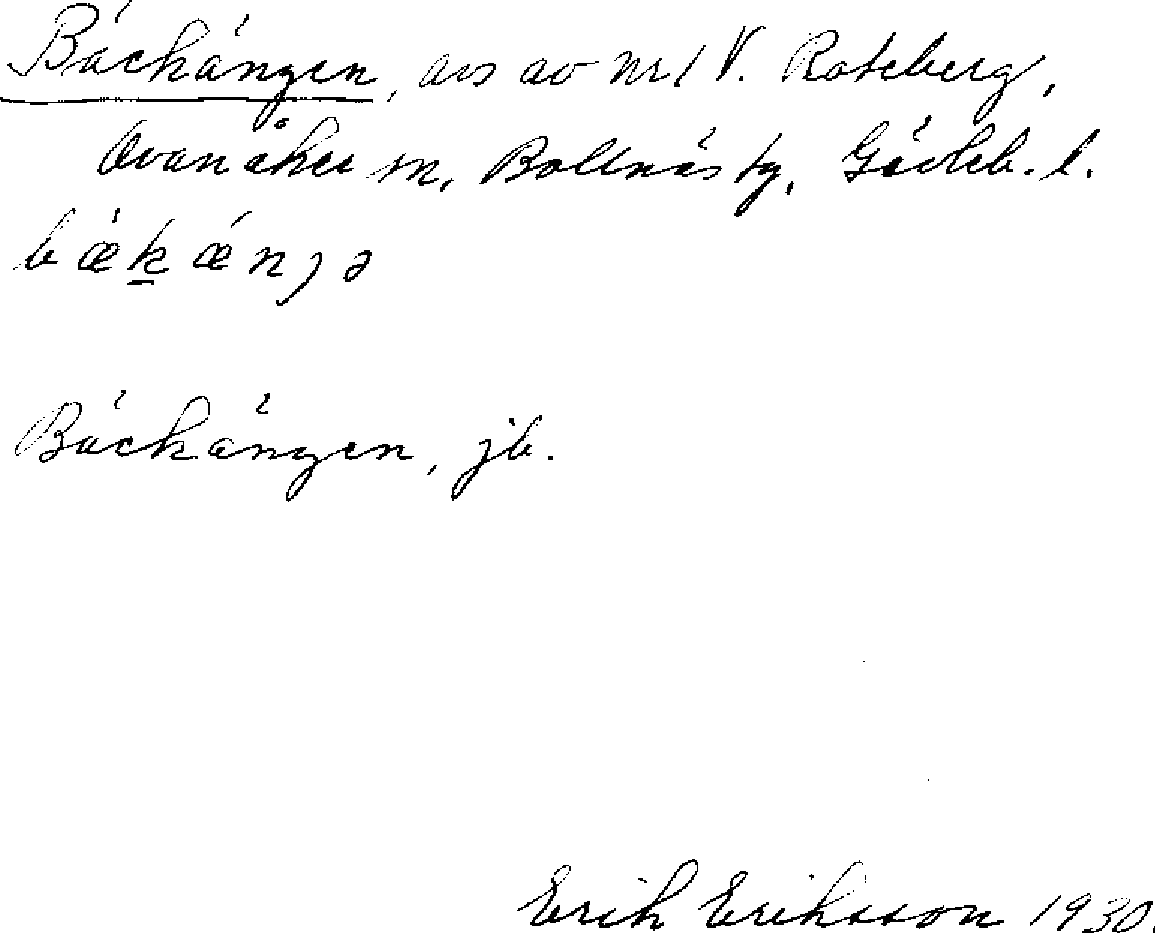 Bäckängen, avs av nr 1 V. Roteberg,
Ovanåker sn, Bollnäs tg, Gävleb. l.
bækænȷə
Bäckängen, jb.
Erik Eriksson 1930.